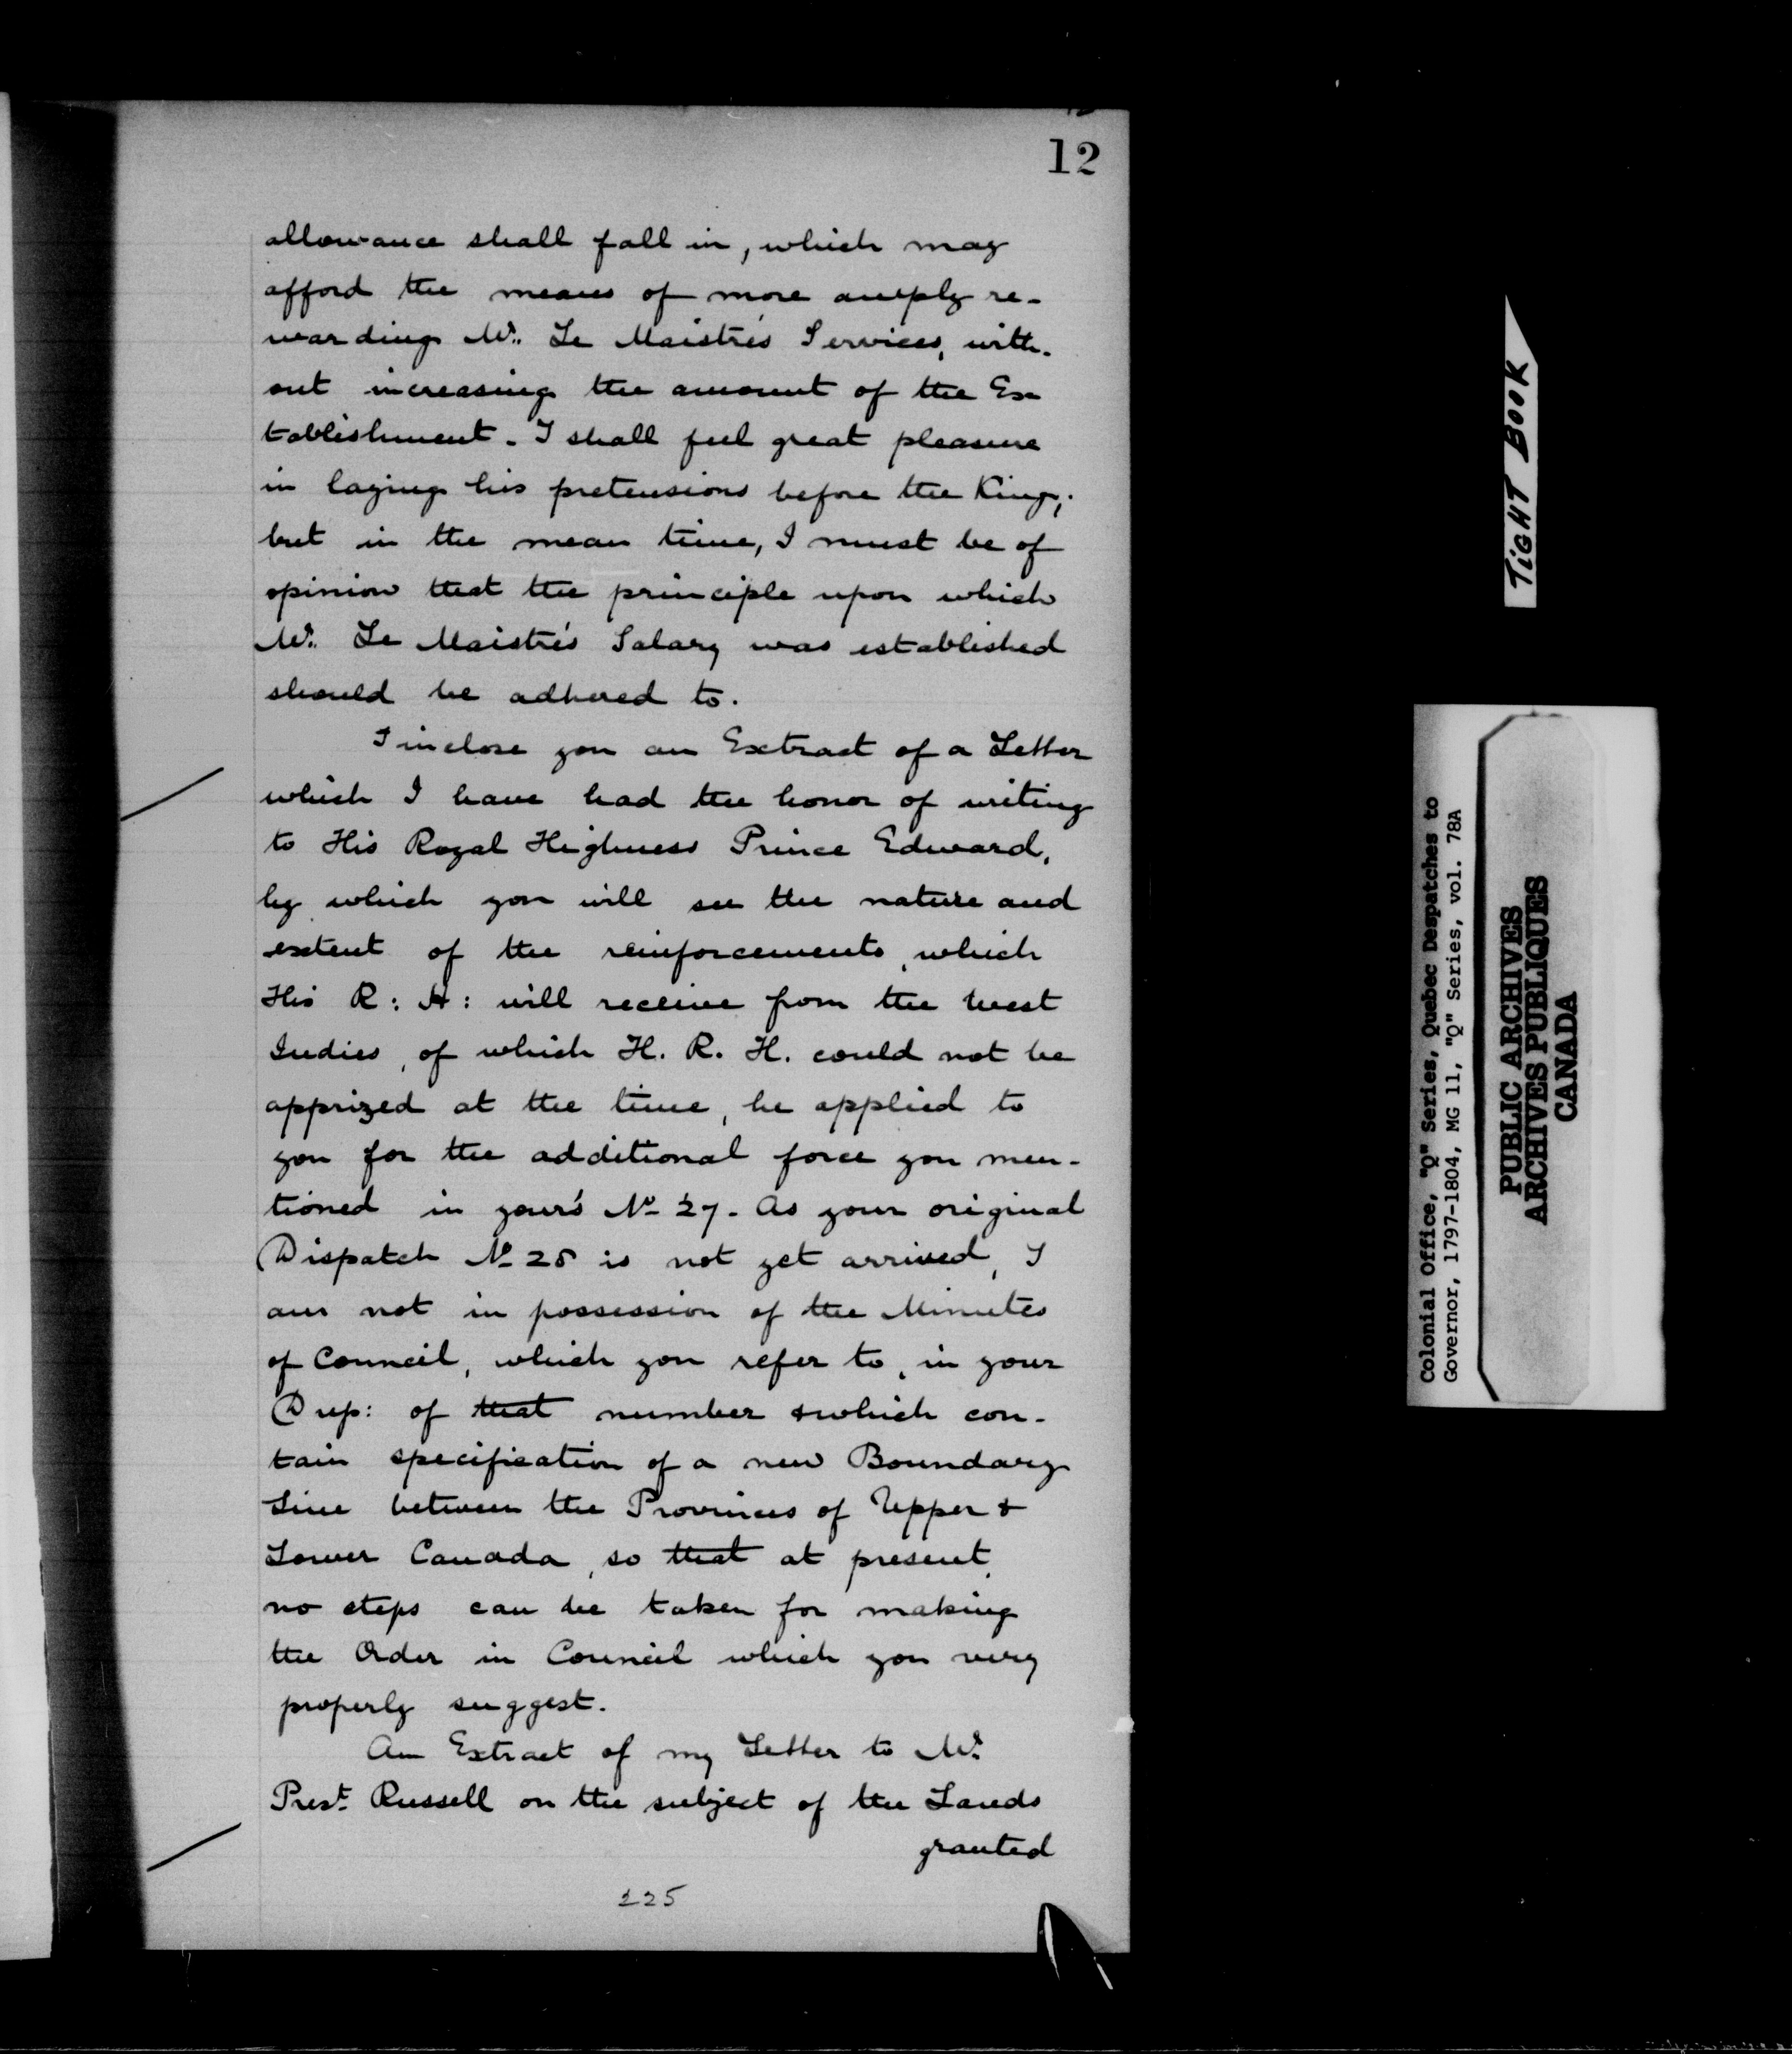 12
allowance shall fall in, which may
afford the means of more amply re-
warding Mr. Le Maistre's Services, with-
out increasing the amount of the Es-
tablishment. I shall feel great pleasure
in laying his pretensions before the King;
but in the mean time, I must be of
opinion that the principle upon which
Mr. Le Maistre's Salary was established
should be adhered to.
I inclose you an Extract of a Letter
which I have had the honor of writing
to His Royal Highness Prince Edward,
by which you will see the nature and
extent of the reinforcements, which
His R: H: will receive from the West
Indies, of which H. R. H. could not be
apprized at the time, he applied to
you for the additional force you men-
tioned in your's No 27. As your original
Dispatch No 28 is not yet arrived, I
am not in possession of the Minutes
of Council, which you refer to, in your
Dup: of that number & which con-
tain specification of a new Boundary
Line between the Provinces of Upper &
Lower Canada, so that at present,
no steps can be taken for making
the Order in Council which you very
properly suggest.
An Extract of my Letter to Mr.
Prest. Russell on the subject of the Lands
granted
225
TIGHT BOOK
Colonial Office, "Q" Series, Quebec Despatches to
Governor, 1797-1804, MG 11, "Q" Series, vol. 78A
PUBLIC ARCHIVES
ARCHIVES PUBLIQUES
CANADA